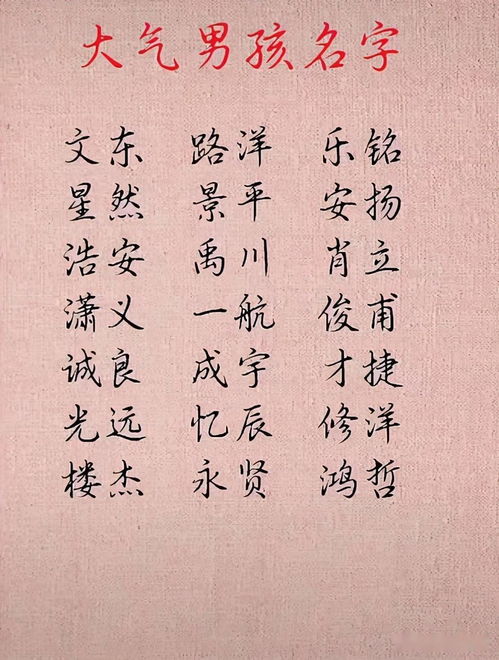 大气男孩名字
文东 路洋 乐铭
星然 景平 安扬
浩安 禹川 肖立
潇义 一航 俊甫
诚良 成宇 才捷
光远 忆辰 修洋
楼杰 永贤 鸿哲